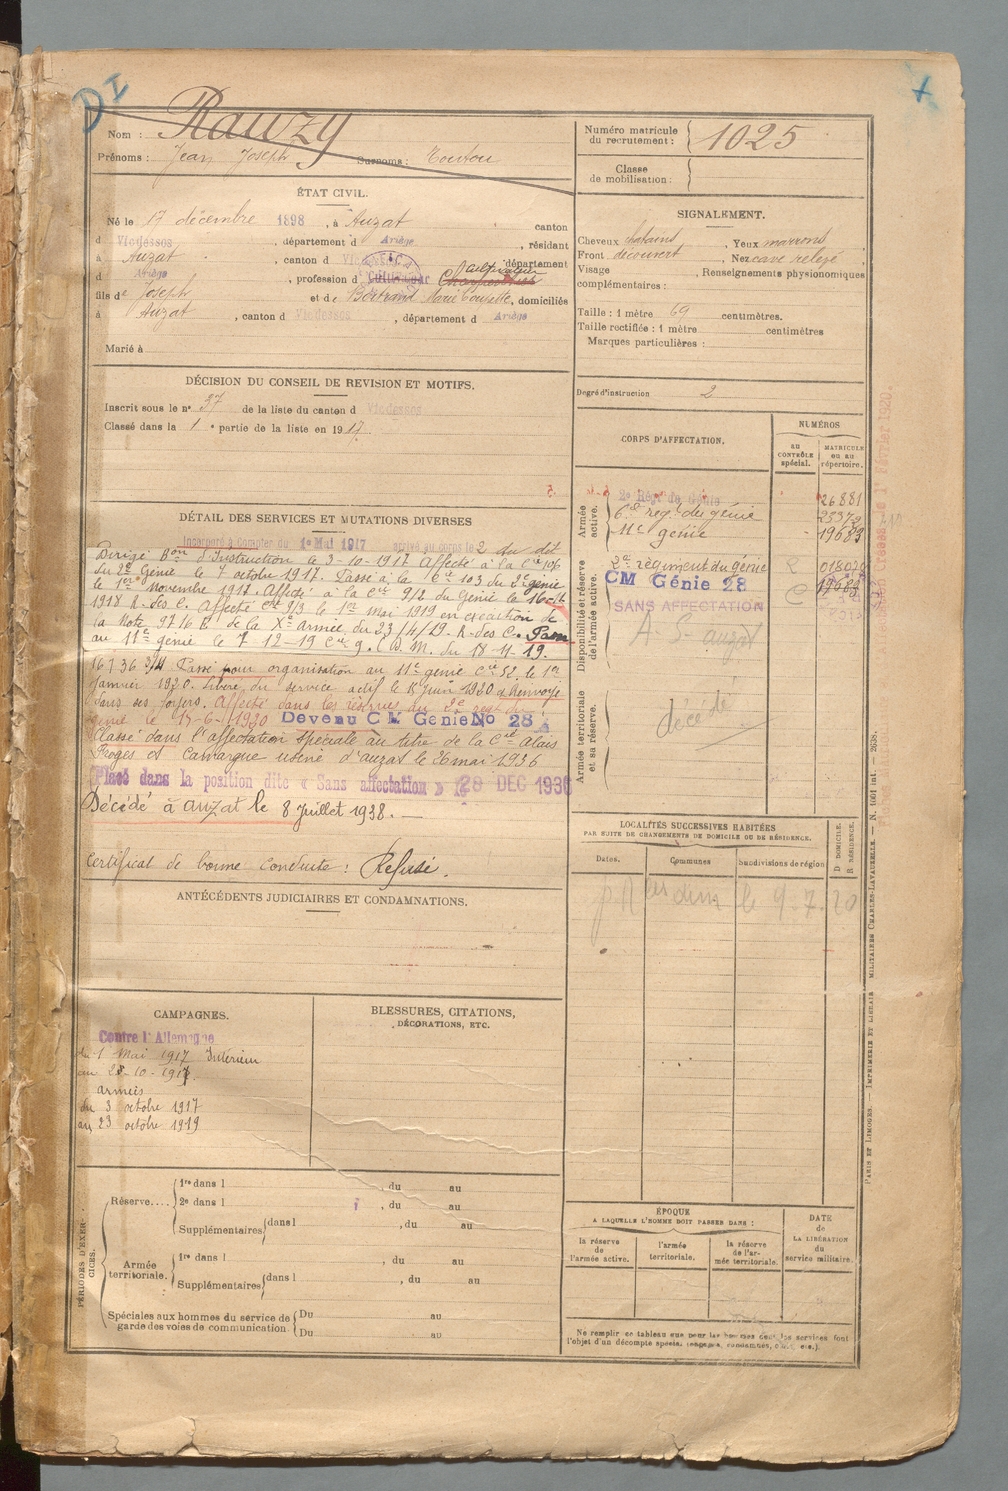 DI
Nom : Rauzy
Prénoms : Jean Joseph Surnoms : Toutou
Numéro matricule du recrutement : 1025
Classe de mobilisation :
ÉTAT CIVIL.
Né le 17 décembre 1898, à Auzat canton
d Vicdessos, département d Ariège, résidant
à Auzat, canton d Vicdessos département
d Ariège, profession d Cultivateur cultivateur
fils de Joseph et de Bertrand Marie , domiciliés
à Auzat, canton d Vicdessos, département d Ariège
Marié à
SIGNALEMENT.
Cheveux chatains, Yeux marrons
Front découvert, Nez cave relevé
Visage , Renseignements physionomiques
complémentaires :
Taille : 1 mètre 69 centimètres.
Taille rectifiée : 1 mètre centimètres
Marques particulières :
Degré d'instruction 2
DÉCISION DU CONSEIL DE REVISION ET MOTIFS.
Inscrit sous le nº 37 de la liste du canton d Vicdessos
Classé dans la 1e partie de la liste en 1917.
DÉTAIL DES SERVICES ET MUTATIONS DIVERSES
Incorporé à compter du 1e Mai 1917 arrivé au corps le 2 du dit
Dirigé Bon d'Instruction le 3-10-1917 Affecté à la Cie 106
du 2e Génie le 7 octobre 1917. Passé à la Cie 103 du 2e génie
le 1er Novembre 1917. Affecté à la Cie 9/2 du Génie le 16
1918 R. des C. Affecté Cie 9/3 le 1er Mai 1919 en execution de
la Note 9716 B de la Xe armée du 23/4/19. R. des C. Passé
au 11e génie le 7-12-19 Cie 9. C. D. M. du 18-11-19.
16.736 3/11 Passé pour organisation au 11e génie Cie 52. le 1er
Janvier 1920. Libéré du service actif le 15 juin 1920 et Renvoyé
dans ses foyers. Affecté dans les réserves du 2e regt du
génie le 17-6-1920 Devenu C M Génie No 28
Classé dans l'affectation spéciale au titre de la Cie Alais
Froges et Camargue usine d'auzat le 26 mai 1936
Placé dans la position dite « Sans affectation » le 28 DEC 1936
Décédé à auzat le 8 juillet 1938.
Certificat de bonne conduite : Refusé.
CORPS D'AFFECTATION.
NUMÉROS
AU CONTRÔLE spécial.
MATRICULE ou au répertoire.
Armée active.
2e Rég. de Génie 26881
6e reg. du génie
11e génie 19683
Disponibilité et réserve de l'armée active.
2e régiment du génie R
CM Génie 28 C
SANS AFFECTATION
A. S. auzat
Armée territoriale et sa réserve.
décédé
LOCALITÉS SUCCESSIVES HABITÉES
PAR SUITE DE CHANGEMENTS DE DOMICILE OU DE RÉSIDENCE.
Dates. Communes Subdivisions de région
D. DOMICILE.
R. RÉSIDENCE.
le 9.7.20
ANTÉCÉDENTS JUDICIAIRES ET CONDAMNATIONS.
CAMPAGNES.
Contre l'Allemagne
du 1 Mai 1917 Intérieur
au 2-10-1917.
armées
du 3 octobre 1917
au 23 octobre 1919
BLESSURES, CITATIONS,
DÉCORATIONS, ETC.
PÉRIODES D'EXERCICES.
Réserve....
1re dans l , du au
2e dans l , du au
Supplémentaires dans l , du au
Armée territoriale.
1re dans l , du au
Supplémentaires dans l , du au
Spéciales aux hommes du service de garde des voies de communication.
Du au
Du au
ÉPOQUE
A LAQUELLE L'HOMME DOIT PASSER DANS :
la réserve de l'armée active.
l'armée territoriale.
la réserve de l'armée territoriale.
DATE de LA LIBÉRATION du service militaire.
Ne remplir ce tableau que pour les hommes dont les services font
l'objet d'un décompte spécial (engagés, condamnés, omis, etc.).
PARIS ET LIMOGES. — IMPRIMERIE ET LIBRAIRIE MILITAIRES CHARLES-LAVAUZELLE. — N. 1001 int. — 2638.